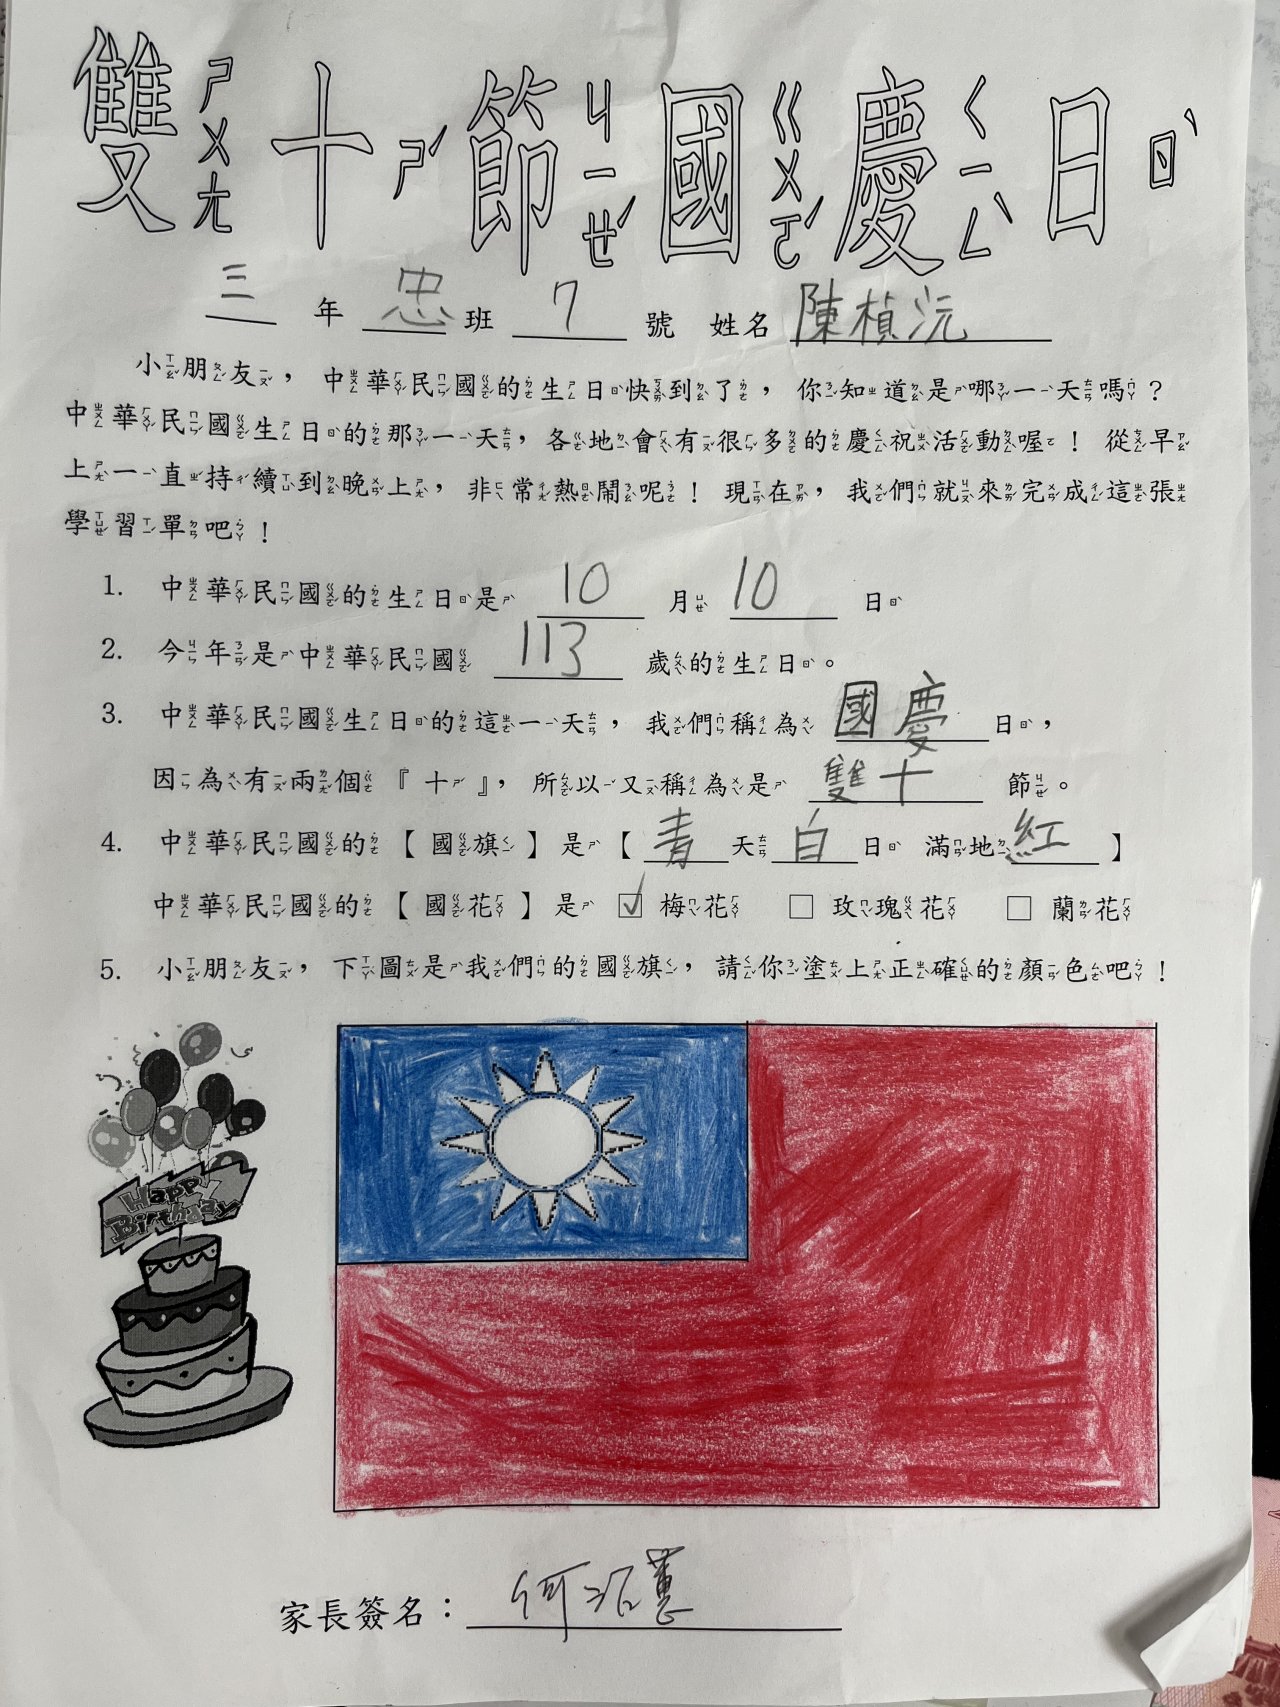 雙ㄕㄨㄤ十ㄕˊ節ㄐㄧㄝˊ國ㄍㄨㄛˊ慶ㄑㄧㄥˋ日ㄖˋ
三 年 忠 班 7 號 姓名 陳楨沅
小朋友，中華民國的生日快到了，你知道是哪一天嗎？
中華民國生日的那一天，各地會有很多的慶祝活動喔！從早
上一直持續到晚上，非常熱鬧呢！現在，我們就來完成這張
學習單吧！
1. 中華民國的生日是 10 月 10 日
2. 今年是中華民國 113 歲的生日。
3. 中華民國生日的這一天，我們稱為 國慶 日，
因為有兩個『十』，所以又稱為是 雙十 節。
4. 中華民國的【國旗】是【青天白日 滿地紅】
中華民國的【國花】是 ☑ 梅花 □ 玫瑰花 □ 蘭花
5. 小朋友，下圖是我們的國旗，請你塗上正確的顏色吧！
Happy
Birthday
家長簽名：何